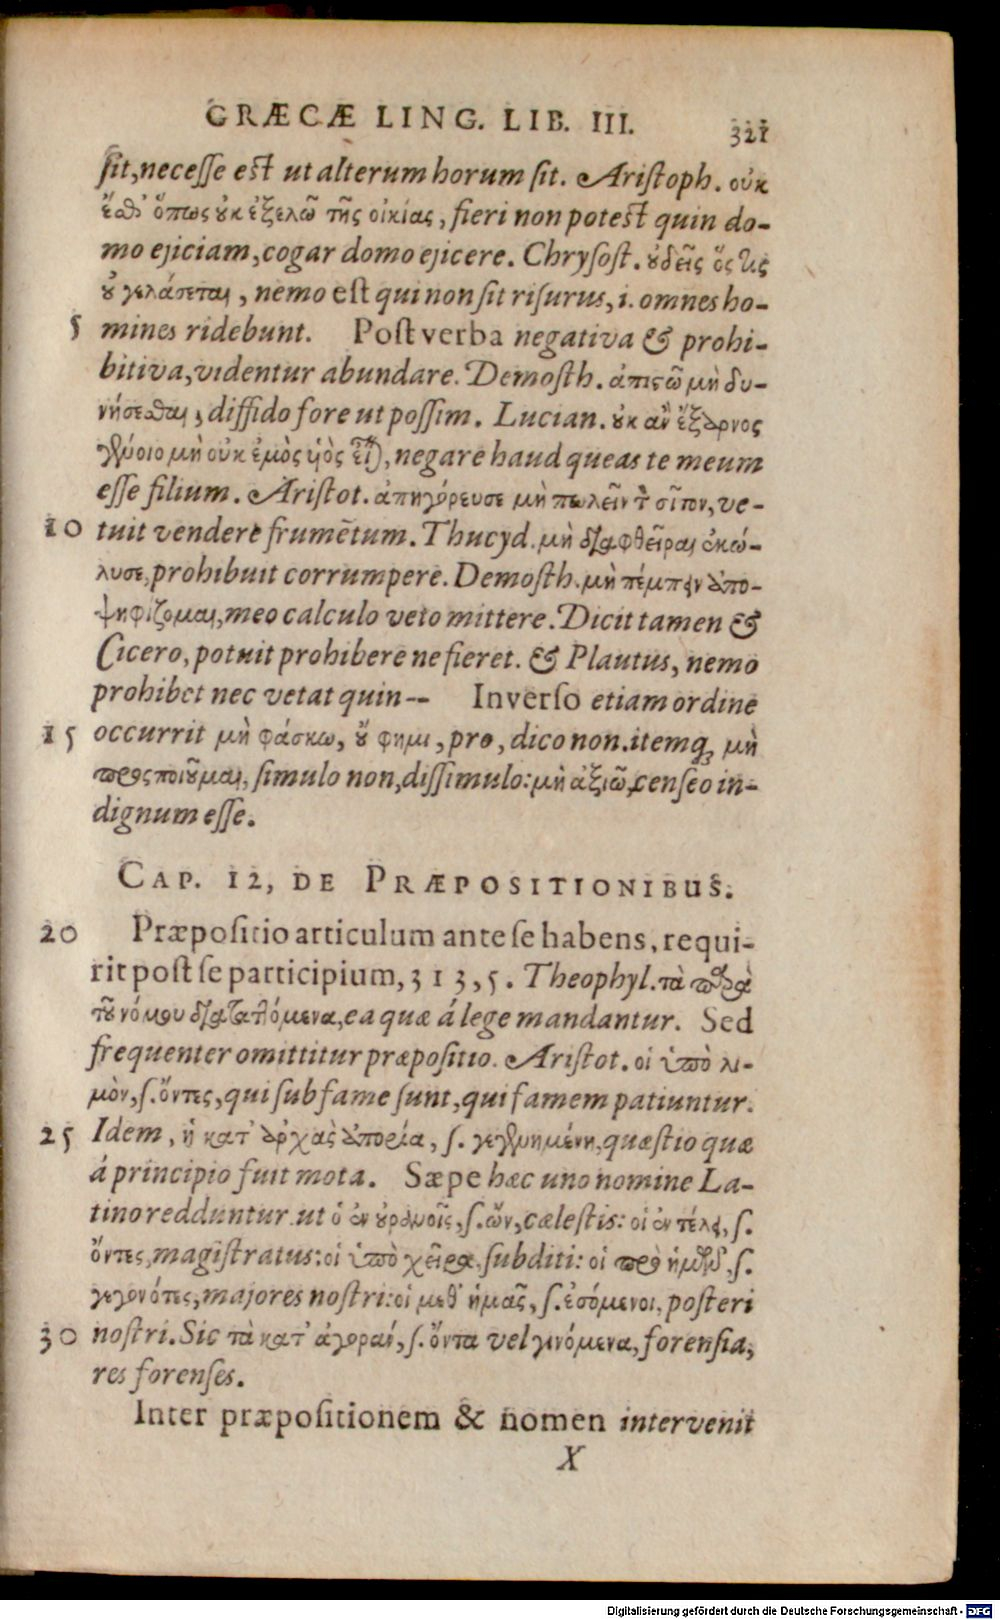 GRÆCÆ LING. LIB. III. 321
sit, necesse est ut alterum horum sit. Aristoph. οὐκ
ἔσθ' ὅπως οὐκ ἐξελῶ τῆς οἰκίας, fieri non potest quin do-
mo ejiciam, cogar domo ejicere. Chrysost. οὐδεὶς ὅς τις
οὐ γελάσεται, nemo est qui non sit risurus, i. omnes ho-
5 mines ridebunt. Post verba negativa & prohi-
bitiva, videntur abundare. Demosth. ἀπιστῶ μὴ δυ-
νήσεσθαι, diffido fore ut possim. Lucian. οὐκ ἂν ἔξαρνος
γένοιο μὴ οὐκ ἐμὸς υἱὸς εἶναι, negare haud queas te meum
esse filium. Aristot. ἀπηγόρευσε μὴ πωλεῖν τὸν σῖτον, ve-
10 tuit vendere frumētum. Thucyd. μὴ διαφθεῖραι ἐκώ-
λυσε, prohibuit corrumpere. Demosth. μὴ πέμπειν ἀπο-
ψηφίζομαι, meo calculo veto mittere. Dicit tamen &
Cicero, potuit prohibere ne fieret. & Plautus, nemo
prohibet nec vetat quin-- Inverso etiam ordine
15 occurrit μὴ φάσκω, οὔ φημι, pro, dico non. itemq; μὴ
προςποιοῦμαι, simulo non, dissimulo: μὴ ἀξιῶ, censeo in-
dignum esse.
CAP. 12, DE PRÆPOSITIONIBUS.
20 Præpositio articulum ante se habens, requi-
rit post se participium, 313, 5. Theophyl. τὰ παρὰ
τοῦ νόμου διαταττόμενα, ea quæ á lege mandantur. Sed
frequenter omittitur præpositio. Aristot. οἱ ὑπὸ λι-
μὸν, s. ὄντες, qui sub fame sunt, qui famem patiuntur.
25 Idem, ἡ κατ' ἀρχὰς ἀπορία, s. γεγενημένη, quæstio quæ
á principio fuit mota. Sæpe hæc uno nomine La-
tino redduntur. ut ὁ ἐν οὐρανοῖς, s. ὤν, cælestis: οἱ ἐν τέλει, s.
ὄντες, magistratus: οἱ ὑπὸ χεῖρα, subditi: οἱ πρὸ ἡμῶν, s.
γεγονότες, majores nostri: οἱ μεθ' ἡμᾶς, s. ἐσόμενοι, posteri
30 nostri. Sic τὰ κατ' ἀγορὰν, s. ὄντα vel γινόμενα, forensia,
res forenses.
Inter præpositionem & nomen intervenit
X
Digitalisierung gefördert durch die Deutsche Forschungsgemeinschaft - DFG